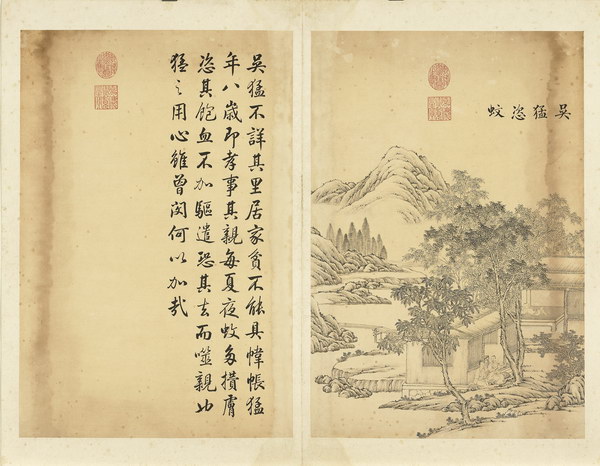 吳猛恣蚊
吳猛不詳其里居家貧不能具幃帳猛
年八歲即孝事其親每夏夜蚊多攢膚
恣其飽血不加驅遣恐其去而噬親也
猛之用心雖曾閔何以加哉